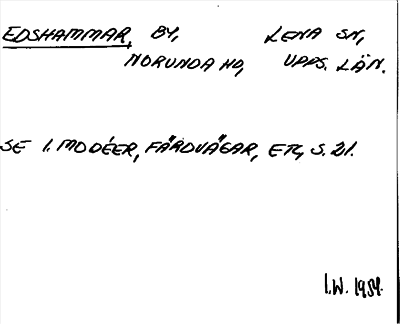 EDSHAMMAR, BY, LENA SN,
NORUNDA HD, UPPS. LÄN.
SE I. MODÉER, FÄRDVÄGAR, ETC, S. 21.
I.W. 1959.